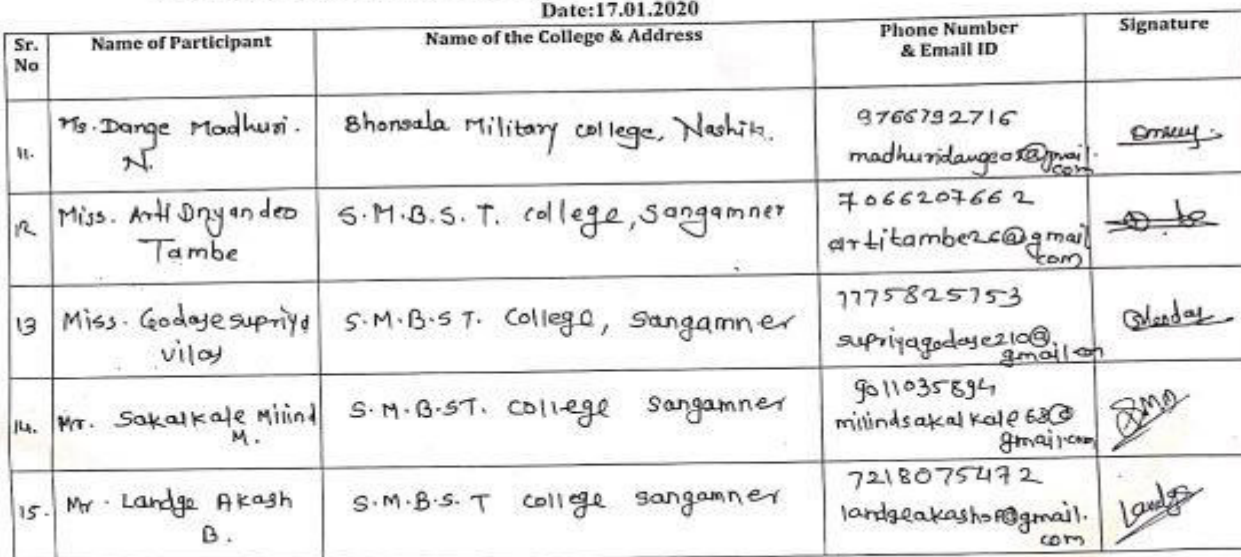 Date:17.01.2020
Sr. No
Name of Participant
Name of the College & Address
Phone Number & Email ID
Signature
11.
Ms. Dange Madhuri.
N.
Bhonsala Military college, Nashik.
9766792716
12
Miss. Arti Dnyandeo
Tambe
S.M.B.S.T. college, Sangamner
7066207662
artitambe26@gmail
com
13
Miss. Godase supriya
vilas
S.M.B.S T. College, Sangamner
7775825753
supriyagodase210@
gmail.com
14.
Mr. Sakalkale Milind
M.
S.M.B.ST. College Sangamner
9011035894
milindsakalkale68@
gmail.com
15.
Mr. Landge Akash
B.
S.M.B.S.T college sangamner
7218075472
Landge